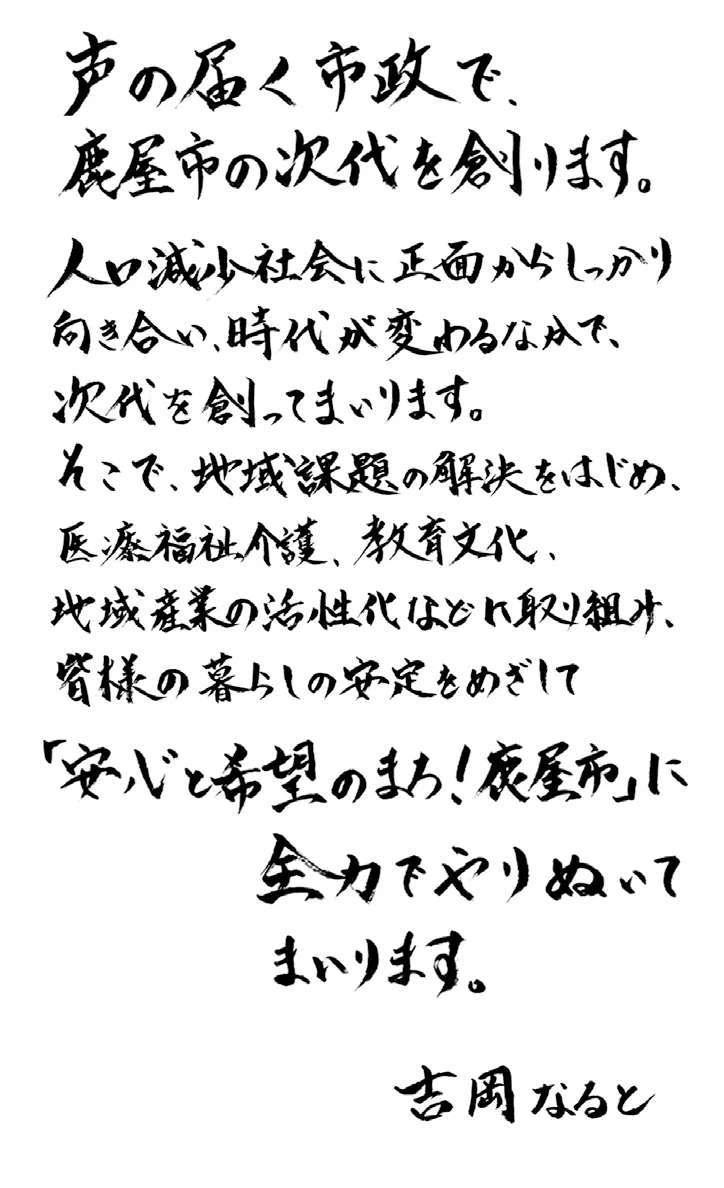 声の届く市政で、
鹿屋市の次代を創ります。
人口減少社会に正面からしっかり
向き合い、時代が変わるなかで、
次代を創ってまいります。
そこで、地域課題の解決をはじめ、
医療福祉介護、教育文化、
地域産業の活性化などに取り組み、
皆様の暮らしの安定をめざして
「安心と希望のまち!鹿屋市」に
全力でやりぬいて
まいります。
吉岡なると